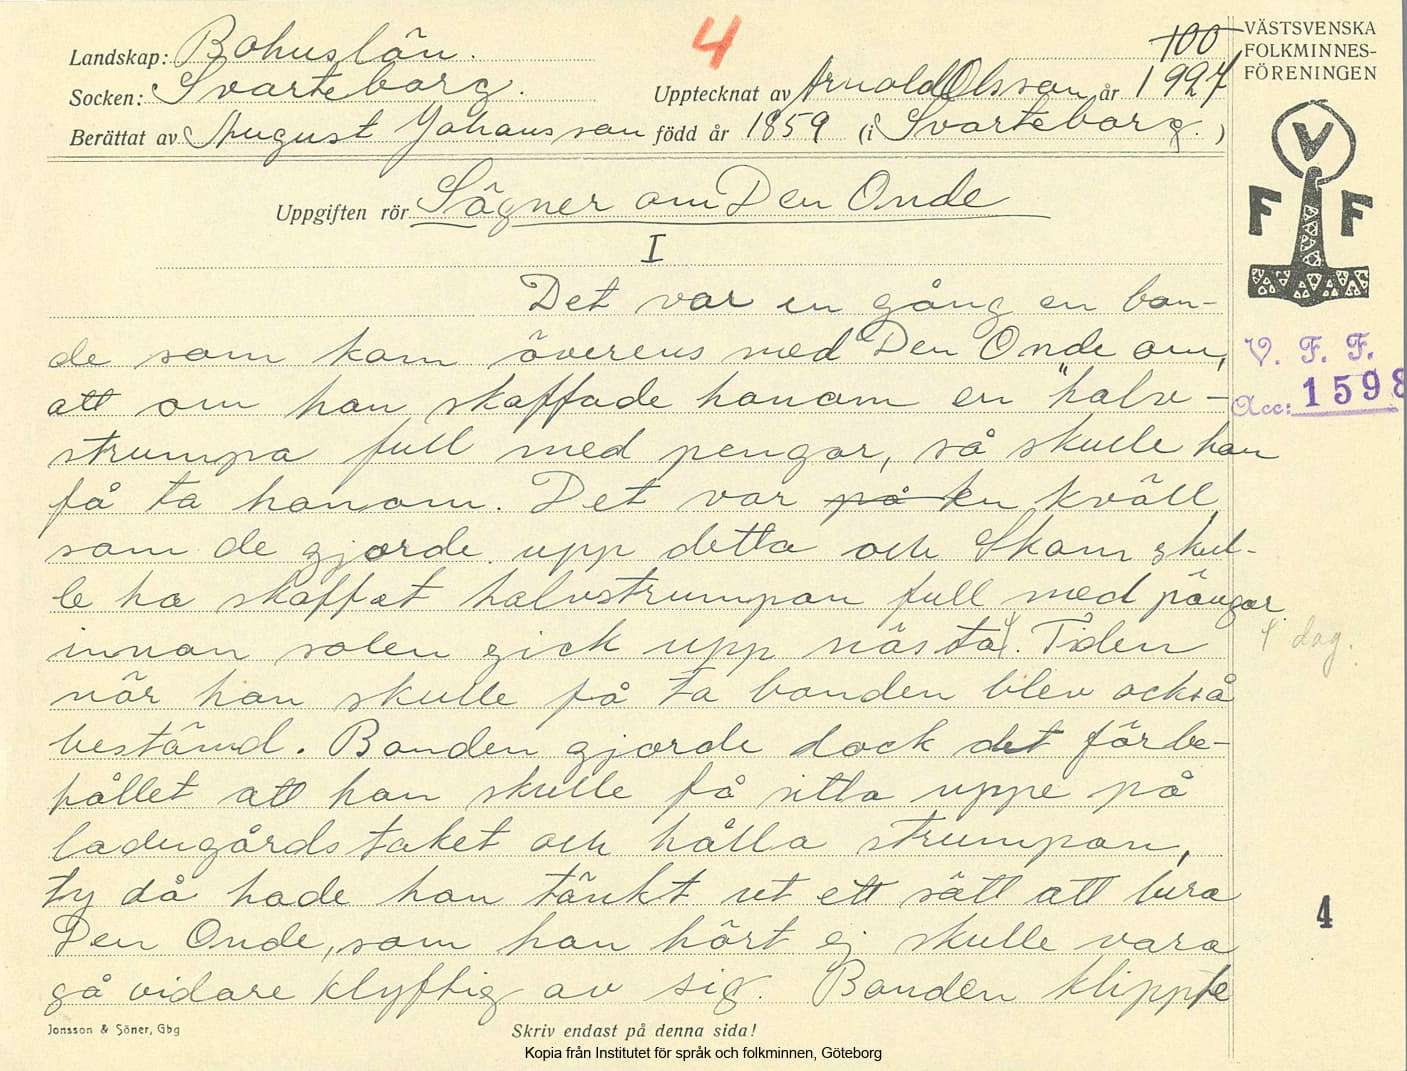 4
100
VÄSTSVENSKA
FOLKMINNES-
FÖRENINGEN
Landskap: Bohuslän.
Socken: Svarteborg. Upptecknat av Arnold Olsson år 1927
Berättat av August Johansson född år 1859 (i Svarteborg.)
V
F F
Uppgiften rör Sägner om Den Onde
I
Det var en gång en bon-
de som kom överens med Den Onde om,
att om han skaffade honom en "halv-
strumpa full med pengar, så skulle han
få ta honom. Det var på en kväll,
som de gjorde upp detta och Skam skul-
le ha skaffat halvstrumpan full med pängar
innan solen gick upp nästa. Tiden
dag.
när han skulle få ta bonden blev också
bestämd. Bonden gjorde dock det förbe-
hållet att han skulle få sitta uppe på
ladugårdstaket och hålla strumpan,
ty då hade han tänkt ut ett sätt att lura
Den Onde, som han hört ej skulle vara
så vidare klyftig av sig. Bonden klippte
V. F. F.
Acc: 1598
4
Jonsson & Söner, Gbg
Skriv endast på denna sida!
Kopia från Institutet för språk och folkminnen, Göteborg